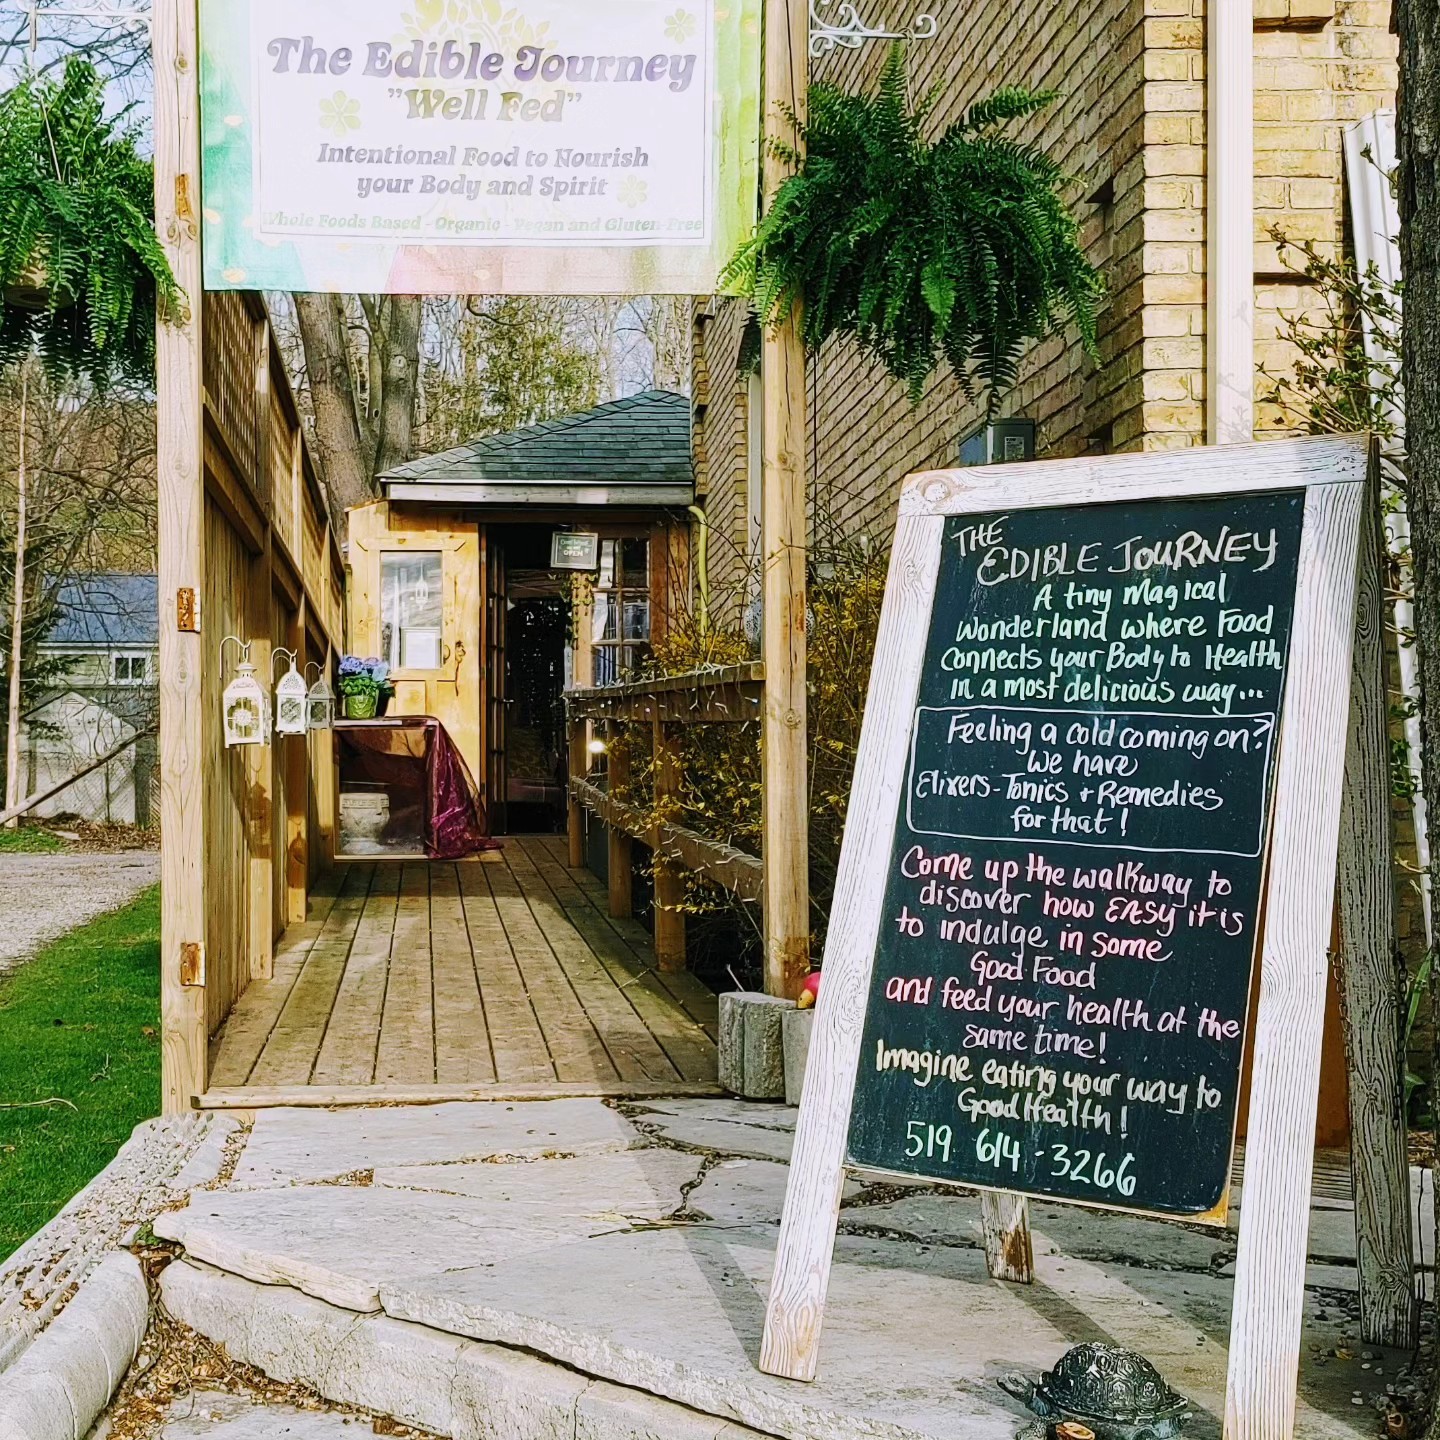 The Edible Journey
"Well Fed"
Intentional Food to Nourish
your Body and Spirit
Whole Foods Based - Organic - Vegan and Gluten Free
OPEN
THE
EDIBLE JOURNEY
A tiny magical
wonderland where Food
connects your Body to Health
in a most delicious way...
Feeling a cold coming on?
We have
Elixers - Tonics + Remedies
for that!
Come up the walkway to
discover how EASY it is
to indulge in some
Good Food
and feed your health at the
same time!
Imagine eating your way to
Good Health!
519. 614 - 3266